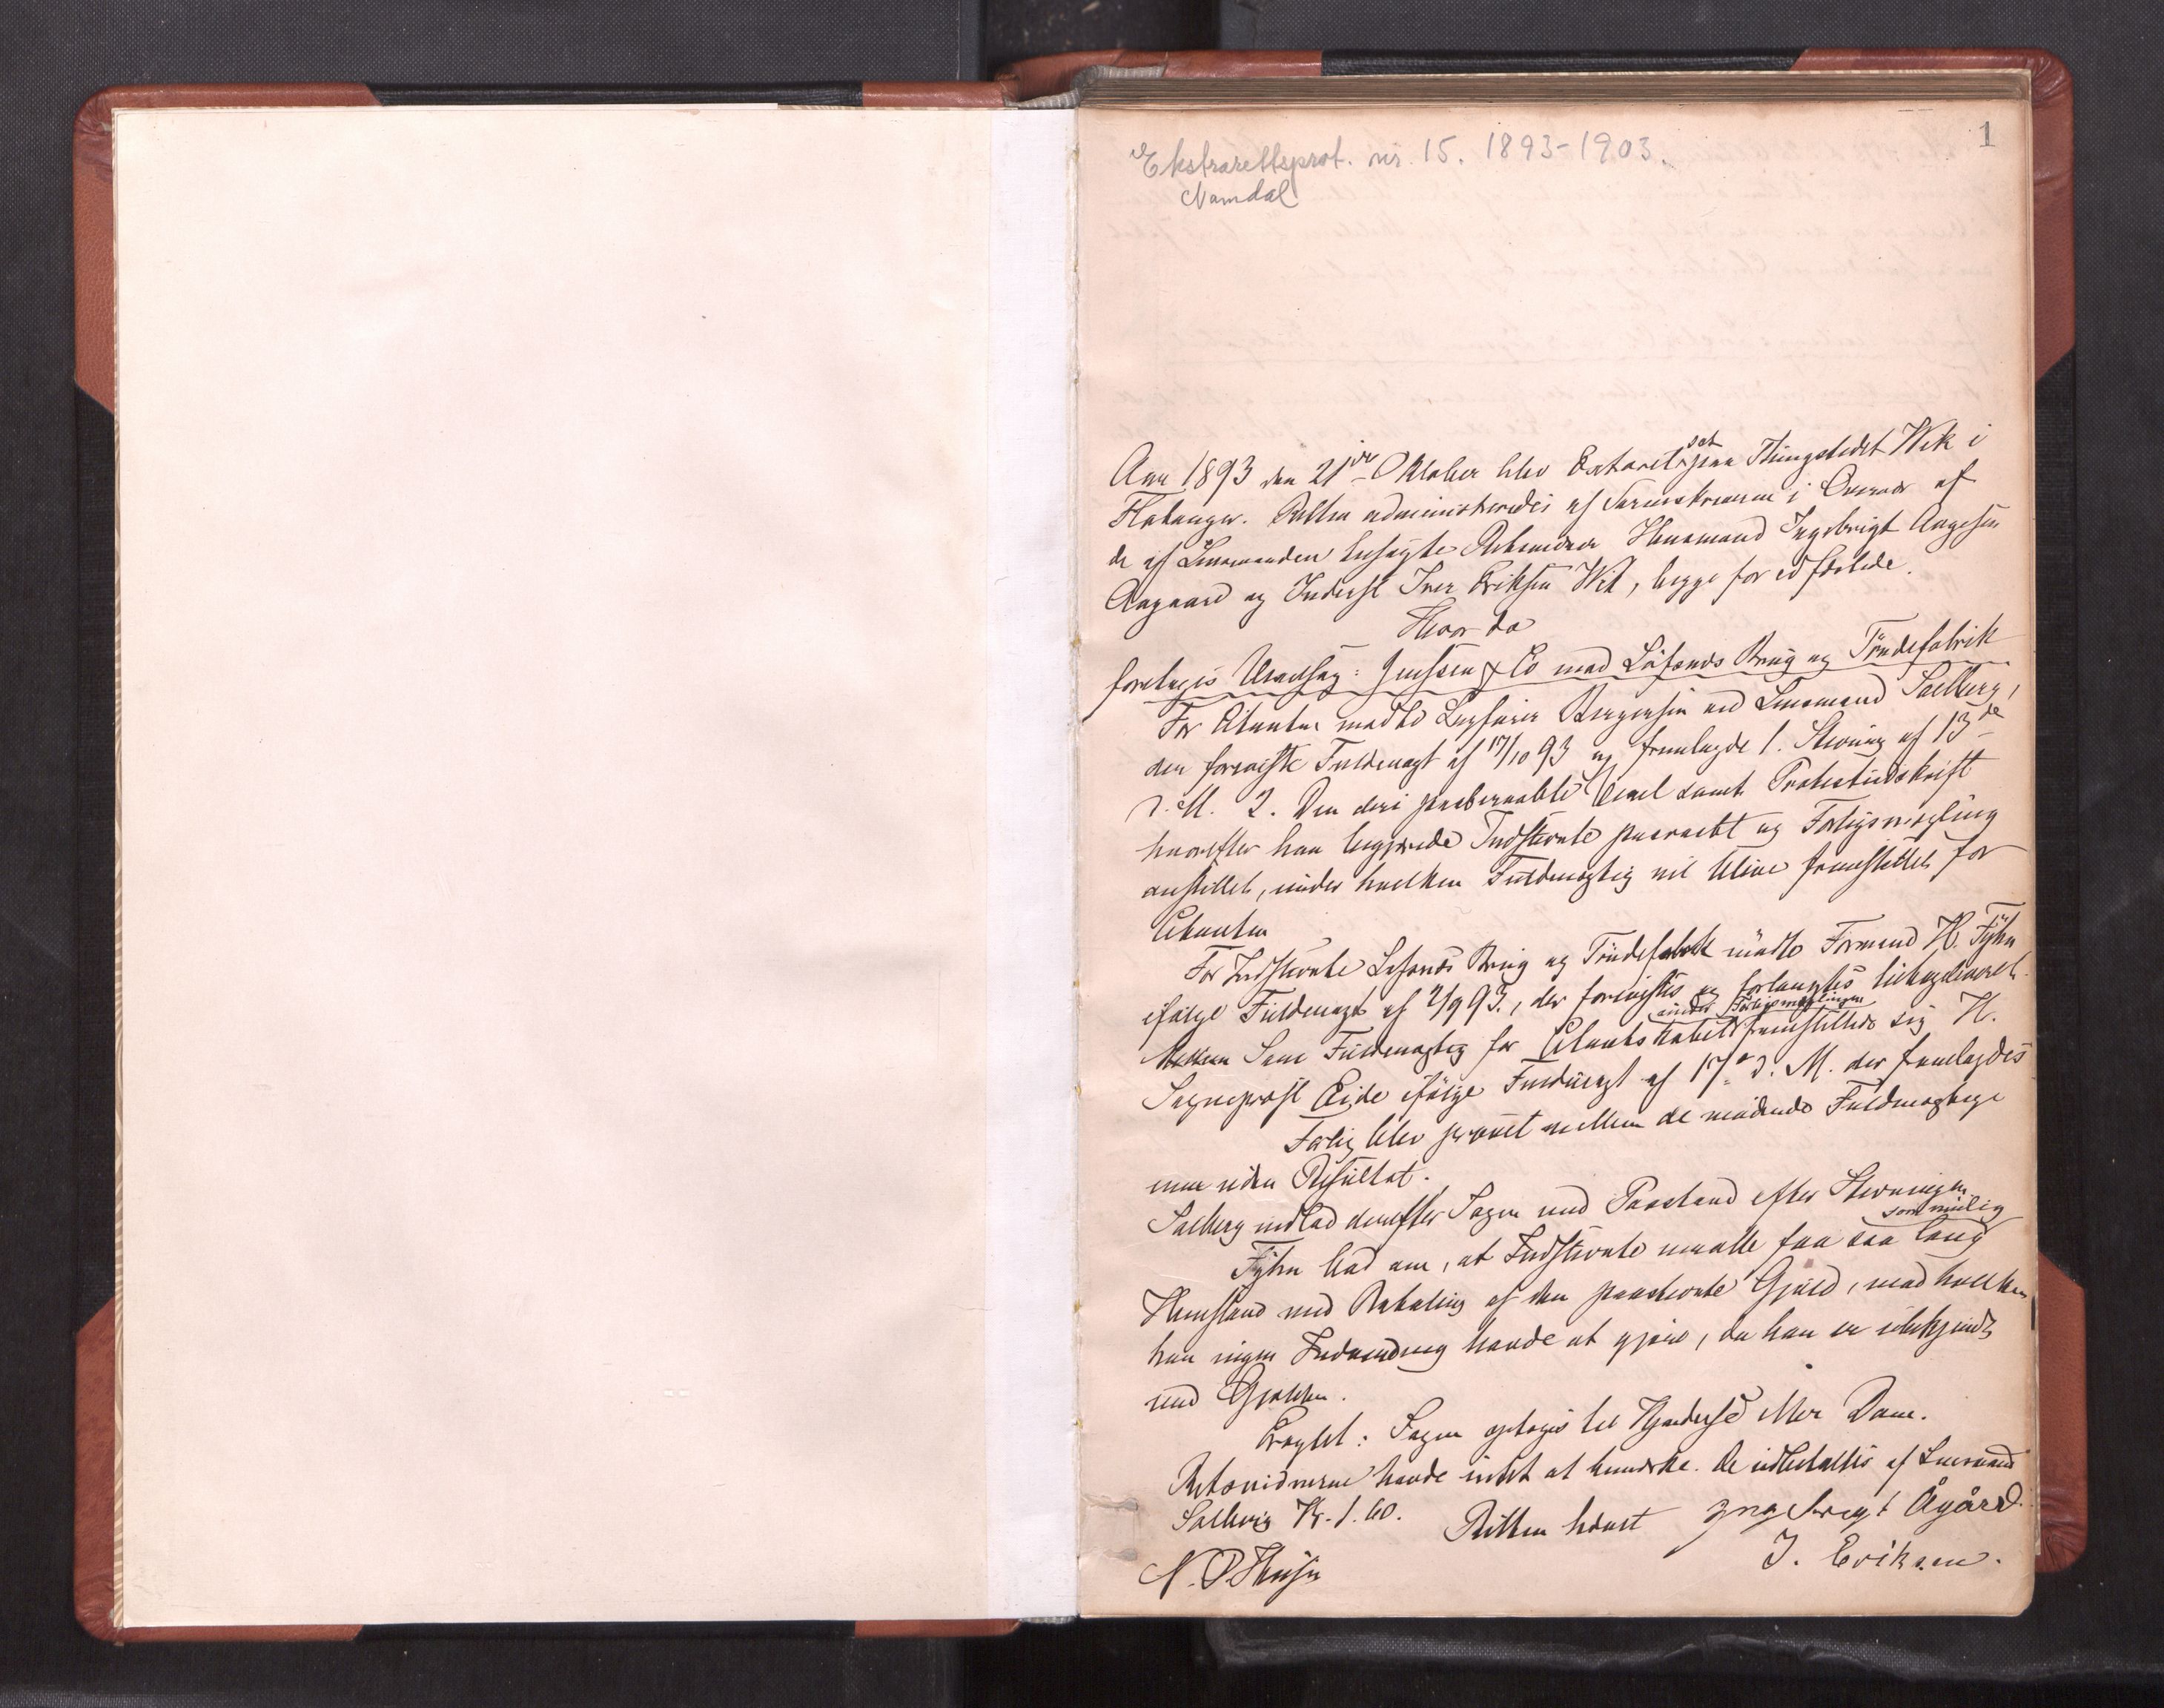 1
Ekstrarettsprot. nr. 15. 1893-1903.
Namdal
Aar 1893 den 21de Oktober blev Extraret sat paa Thingstedet Wik i
Flatanger. Retten administreredes af Sorenskriveren i Overvær af
de af Lensmanden tilsagte Retsvidner Husmand Ingebrigt Aagesen
Aagaard og Inderst Iver Eriksen Wik, begge før edfæstede.
Hvor da
foretoges Vexelsag: Jenssen & Co mod Løfsnes Brug og Tøndefabrik
For Citanten mødte Sagfører Bergersen ved Lensmand Salberg,
der foreviste Fuldmagt af 17/10 93 og fremlagde 1. Stevning af 13de
d. M. 2. Den deri paaberaabte Vexel samt Protestudskrift
hvorefter han begjærede Indstevnte paaraabt og Forligsmægling
anstillet, under hvilken Fuldmægtig vil blive fremstillet for
Citanten
For Indstevnte Løfsnes Brug og Tøndefabrik mødte Formand H. Fyhn
ifølge Fuldmagt af 2/9 93., der forevistes og forlangtes tilbageleveret.
Som Fuldmægtig for Citantskabet under Forligsmæglingen fremstillede sig H.
Sagneprøst Eide ifølge Fuldmagt af 17de d. M. der fremlagdes
Forlig blev prøvet mellem de mødende Fuldmægtige
men uden Resultat.
Salberg indlod derefter Sagen med Paastand efter Stevningen.
Fyhn bad om, at Indstevnte maatte faa saa lang som mulig
Henstand med Betaling af den paastevnte Gjæld, mod hvilken
han ingen Indvending havde at gjøre, da han er ubekjendt
med Gjælden.
Eragtet: Sagen optages til Kjendelse eller Dom.
Retsvidnerne havde intet at bemærke. De udbetaltes af Lensmand
Salberg Kr. 1.60.
Retten hævet
Ingebregt Ågård.
N. P. Thiisen
I. Eriksen.